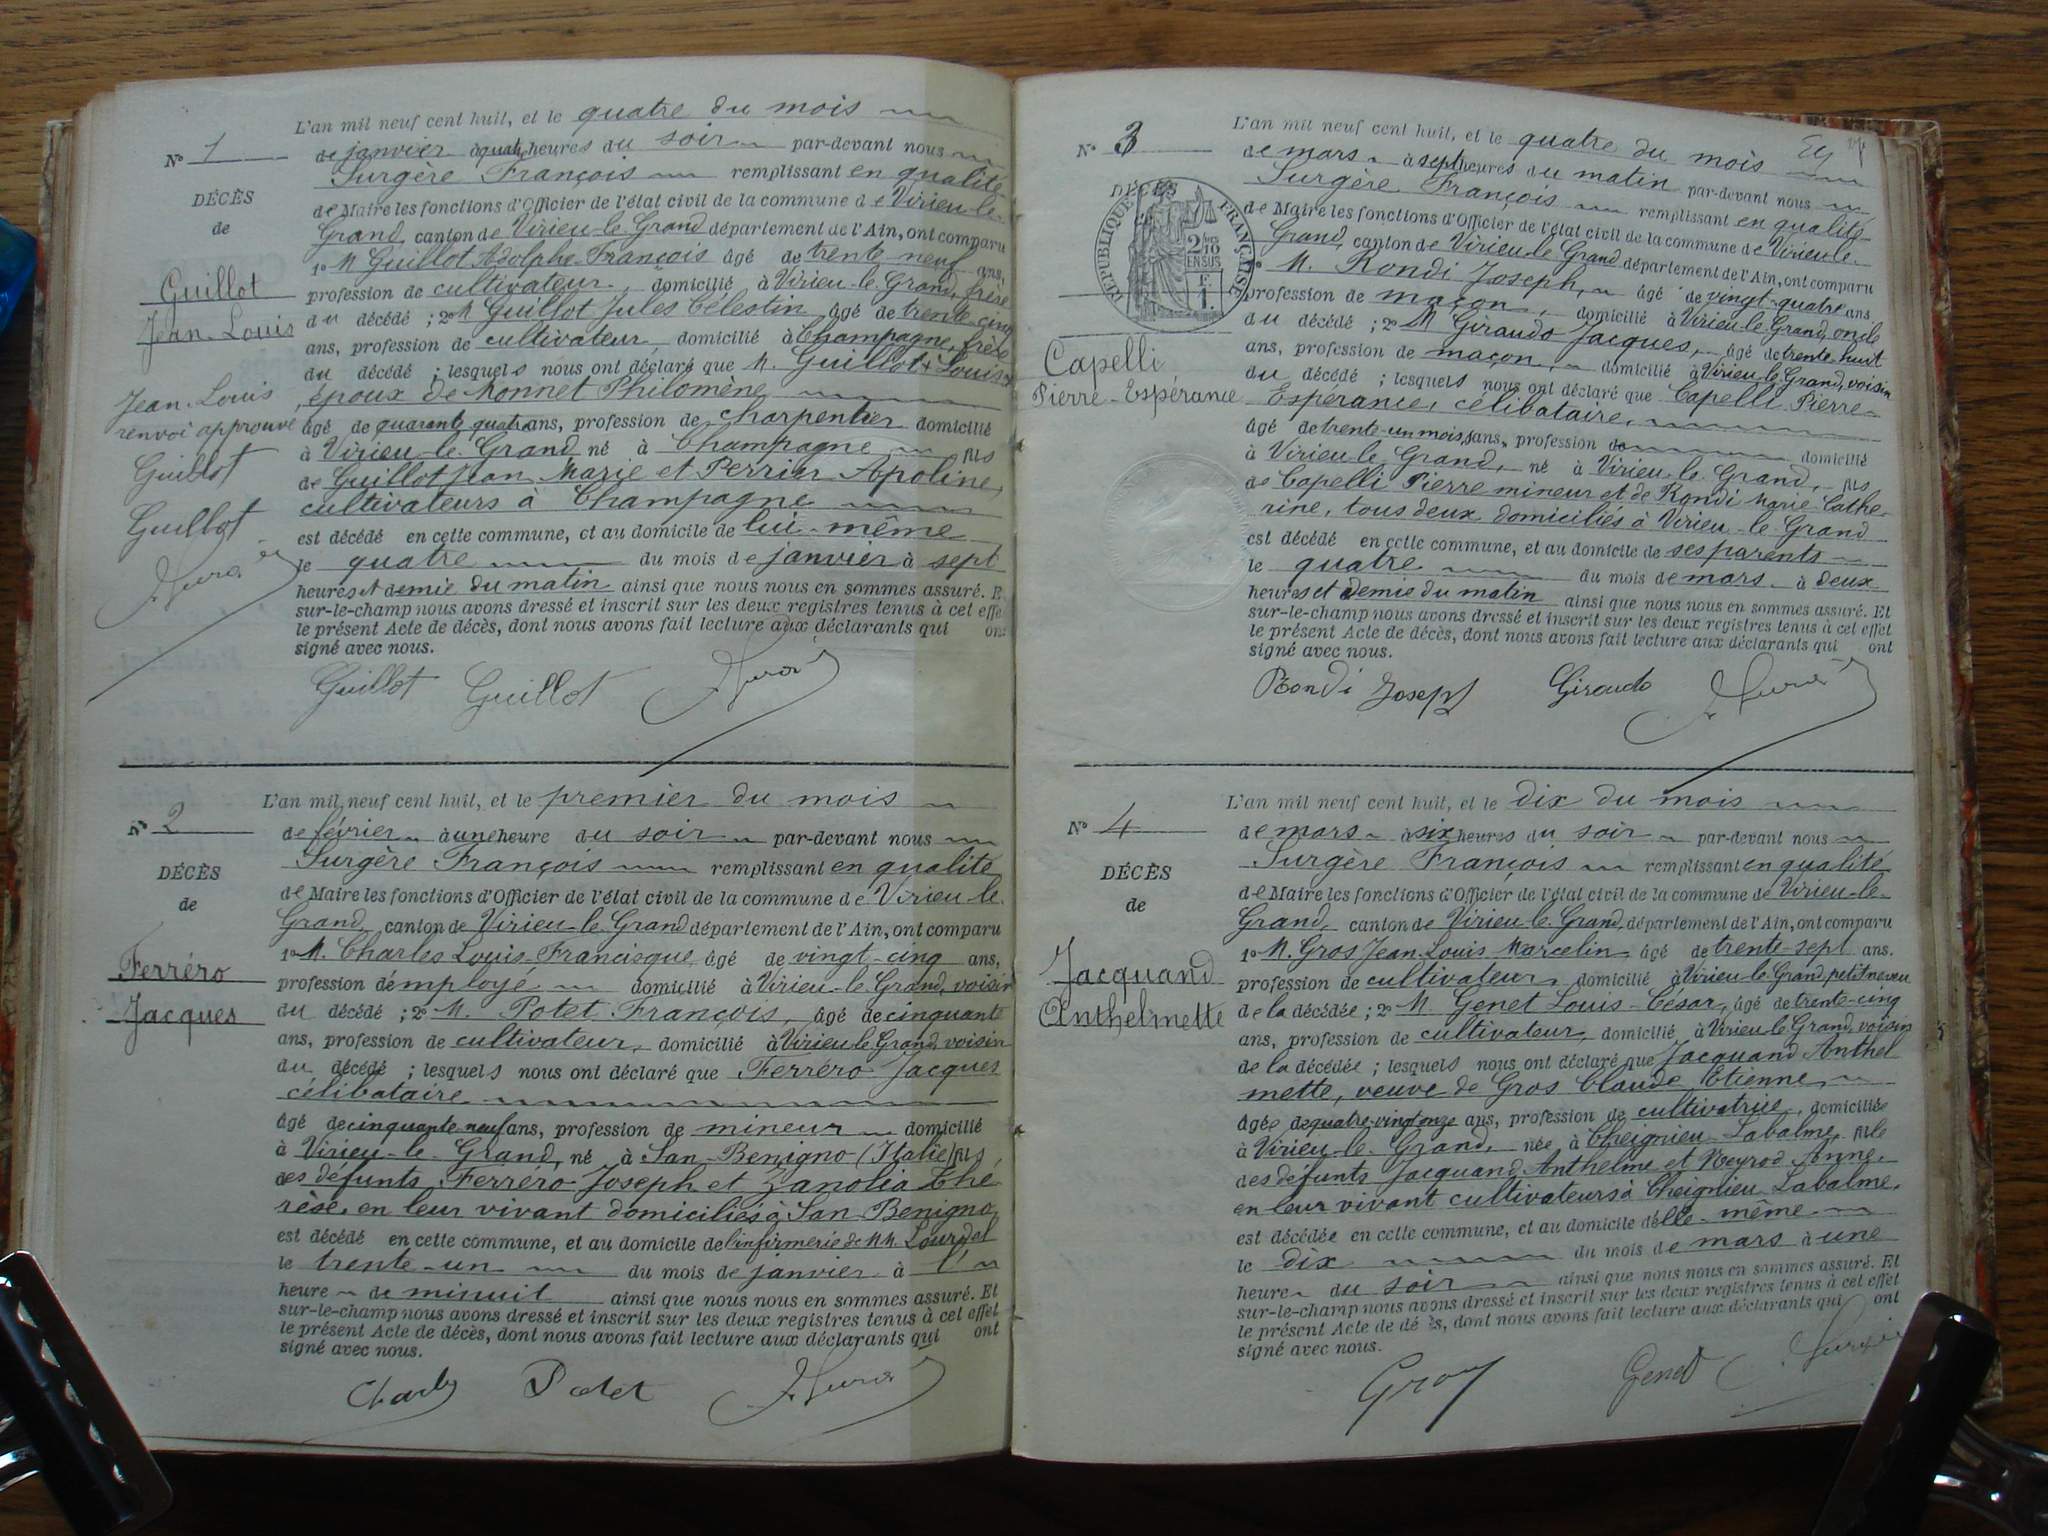 L'an mil neuf cent huit, et le quatre du mois
N° 1
de janvier à quatre heures du soir par-devant nous
Surgère François remplissant en qualité
DÉCÈS
de Maire les fonctions d'Officier de l'état civil de la commune de Virieu-le-
de
Grand, canton de Virieu-le-Grand département de l'Ain, ont comparu
1° M Guillot Adolphe-François âgé de trente neuf ans,
Guillot
profession de cultivateur, domicilié à Virieu-le-Grand, frère
Jean-Louis
du décédé ; 2° M Guillot Jules Célestin âgé de trente cinq
ans, profession de cultivateur domicilié à Champagne, frère
du décédé ; lesquels nous ont déclaré que M. Guillot + Louis
Jean-Louis
époux de Monnet Philomène
renvoi approuvé
âgé de quarante quatre ans, profession de charpentier domicilié
à Virieu-le-Grand né à Champagne fils
Guillot
de Guillot Jean Marie et Perrier Apoline,
cultivateurs à Champagne
Guillot
est décédé en cette commune, et au domicile de lui-même
le quatre du mois de janvier à sept
heures et demie du matin ainsi que nous nous en sommes assuré. E
sur-le-champ nous avons dressé et inscrit sur les deux registres tenus à cet effe
le présent Acte de décès, dont nous avons fait lecture aux déclarants qui on
signé avec nous.
Guillot Guillot
L'an mil neuf cent huit, et le premier du mois
N° 2
de février à une heure du soir par-devant nous
Surgère François remplissant en qualité
DÉCÈS
de Maire les fonctions d'Officier de l'état civil de la commune de Virieu-le
de
Grand, canton de Virieu-le-Grand département de l'Ain, ont comparu
1° M. Charles Louis-Francisque âgé de vingt-cinq ans,
Ferréro
profession d'employé domicilié à Virieu-le-Grand, voisin
Jacques
du décédé ; 2° M. Potet François, âgé de cinquante
ans, profession de cultivateur, domicilié à Virieu-le-Grand, voisin
du décédé ; lesquels nous ont déclaré que Ferréro Jacques
célibataire
âgé de cinquante neuf ans, profession de mineur domicilié
à Virieu-le-Grand, né à San-Benigno (Italie) fils
des défunts Ferréro Joseph et Zanolia Thé
rèse, en leur vivant domiciliés à San Benigno
est décédé en cette commune, et au domicile de l'infirmerie de MM. Lourdel
le trente-un du mois de janvier à l'
heure de minuit ainsi que nous nous en sommes assuré. Et
sur-le-champ nous avons dressé et inscrit sur les deux registres tenus à cet effet
le présent Acte de décès, dont nous avons fait lecture aux déclarants qui ont
signé avec nous.
Charles Potet
L'an mil neuf cent huit, et le quatre du mois
N° 3
de mars à sept heures du matin par-devant nous
Surgère François remplissant en qualité
DÉCÈS
de Maire les fonctions d'Officier de l'état civil de la commune de Virieu-le-
RÉPUBLIQUE FRANÇAISE
2/10 EN SUS
F. 1.
Grand, canton de Virieu-le-Grand département de l'Ain, ont comparu
1° M. Rondi Joseph, âgé de vingt-quatre ans
profession de maçon, domicilié à Virieu-le-Grand, oncle
du décédé ; 2° M Giraudo Jacques, âgé de trente-huit
Capelli
ans, profession de maçon, domicilié à Virieu-le-Grand, voisin
Pierre-Espérance
du décédé ; lesquels nous ont déclaré que Capelli Pierre-
Espérance, célibataire,
âgé de trente-un mois, ans, profession de domicilié
à Virieu-le-Grand, né à Virieu-le-Grand, fils
de Capelli Pierre mineur et de Rondi Marie-Cathe-
rine, tous deux domiciliés à Virieu-le-Grand
est décédé en cette commune, et au domicile de ses parents
le quatre du mois de mars à deux
heures et demie du matin ainsi que nous nous en sommes assuré. Et
sur-le-champ nous avons dressé et inscrit sur les deux registres tenus à cet effet
le présent Acte de décès, dont nous avons fait lecture aux déclarants qui ont
signé avec nous.
Rondi Joseph Giraudo
L'an mil neuf cent huit, et le dix du mois
N° 4
de mars à six heures du soir par-devant nous
Surgère François remplissant en qualité
DÉCÈS
de Maire les fonctions d'Officier de l'état civil de la commune de Virieu-le-
de
Grand, canton de Virieu-le-Grand, département de l'Ain, ont comparu
1° M. Gros Jean-Louis Marcelin, âgé de trente-sept ans.
Jacquand
profession de cultivateur, domicilié à Virieu-le-Grand petit neveu
Anthelmette
de la décédée ; 2° M. Genet Louis-César, âgé de trente-cinq
ans, profession de cultivateur, domicilié à Virieu-le-Grand, voisin
de la décédée ; lesquels nous ont déclaré que Jacquand Anthel
mette, veuve de Gros Claude Etienne
âgée de quatre-vingt onze ans, profession de cultivatrice, domiciliée
à Virieu-le-Grand, née à Cheignieu-Labalme, fille
des défunts Jacquand Anthelme et Neyrod Anne,
en leur vivant cultivateurs à Cheignieu Labalme,
est décédée en cette commune, et au domicile d'elle-même
le dix du mois de mars à une
heure du soir ainsi que nous nous en sommes assuré. Et
sur-le-champ nous avons dressé et inscrit sur les deux registres tenus à cet effet
le présent Acte de décès, dont nous avons fait lecture aux déclarants qui ont
signé avec nous.
Gros Genet